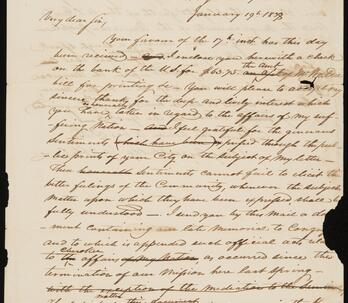 January 19th 1833
My dear Sir,
Your favor of the 17th inst. has this day
been received — and I enclose you herewith a check
on the bank of the U.S. for $63,75 the amt. of
bill for printing &c — You will please to accept my
sincere thanks for the deep and lively interest which
you have taken in regard to the affairs of my suf
fering Nation — and I feel grateful for the generous
sentiments which have been expressed through the pub
lic print of your City on the subject of my letter —
These sentiments cannot fail to elicit the
better feelings of the Community, whenever the subject
matter upon which they have been expressed, shall be
fully understood — I send you by this Mail a do
cument containing our late Memorial to Congress
and to which is appended such official acts
to the Cherokee affairs of my Nation as occurred since the
termination of our Mission here last Spring
with the exception of the Mediation to the